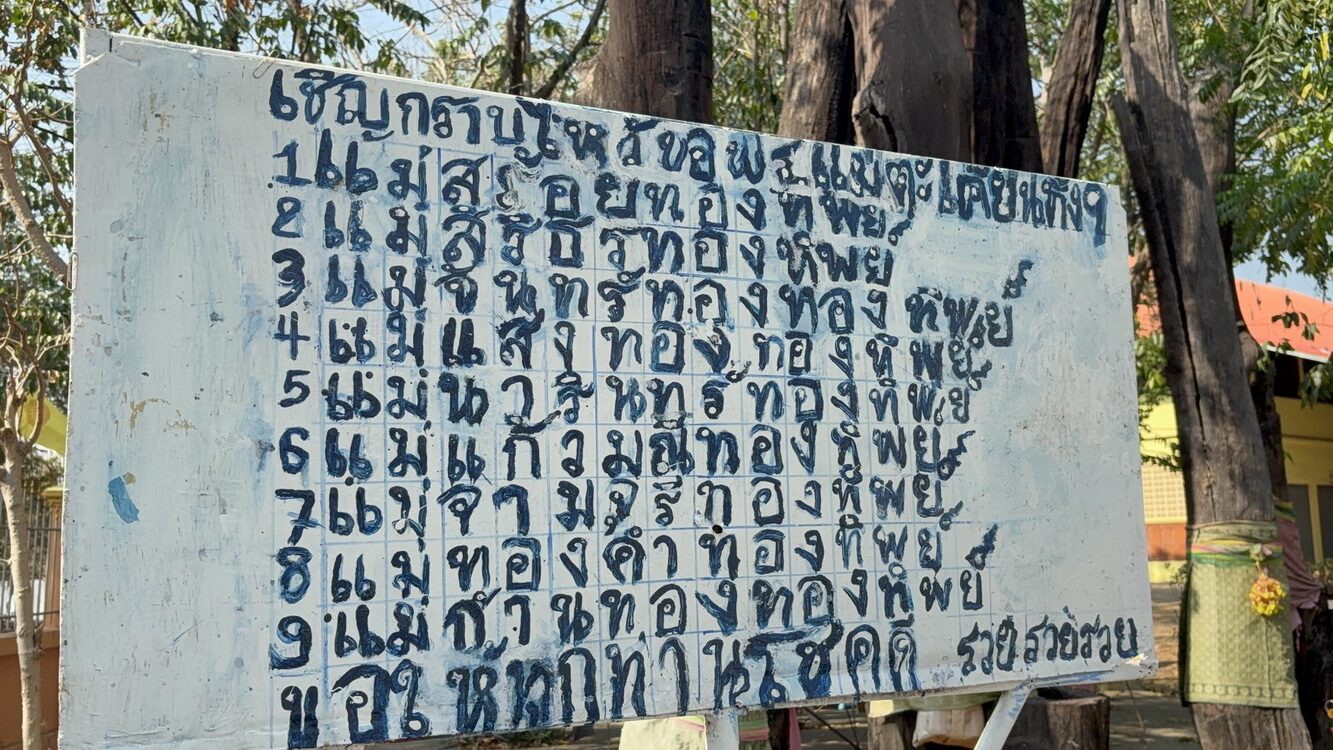 เชิญกราบไหว้ขอพรแม่ตะเคียนทั้ง9
1 แม่สร้อยทองทิพย์
2 แม่สิริธรทองทิพย์
3 แม่จันทร์ทองทองทิพย์
4 แม่แสงทองทองทิพย์
5 แม่นารินทร์ทองทิพย์
6 แม่แก้วมณีทองทิพย์
7 แม่จามจุรีทองทิพย์
8 แม่ทองคำทองทิพย์
9 แม่ก้านทองทองทิพย์
ขอให้ทุกท่านโชคดี รวยรวยรวย